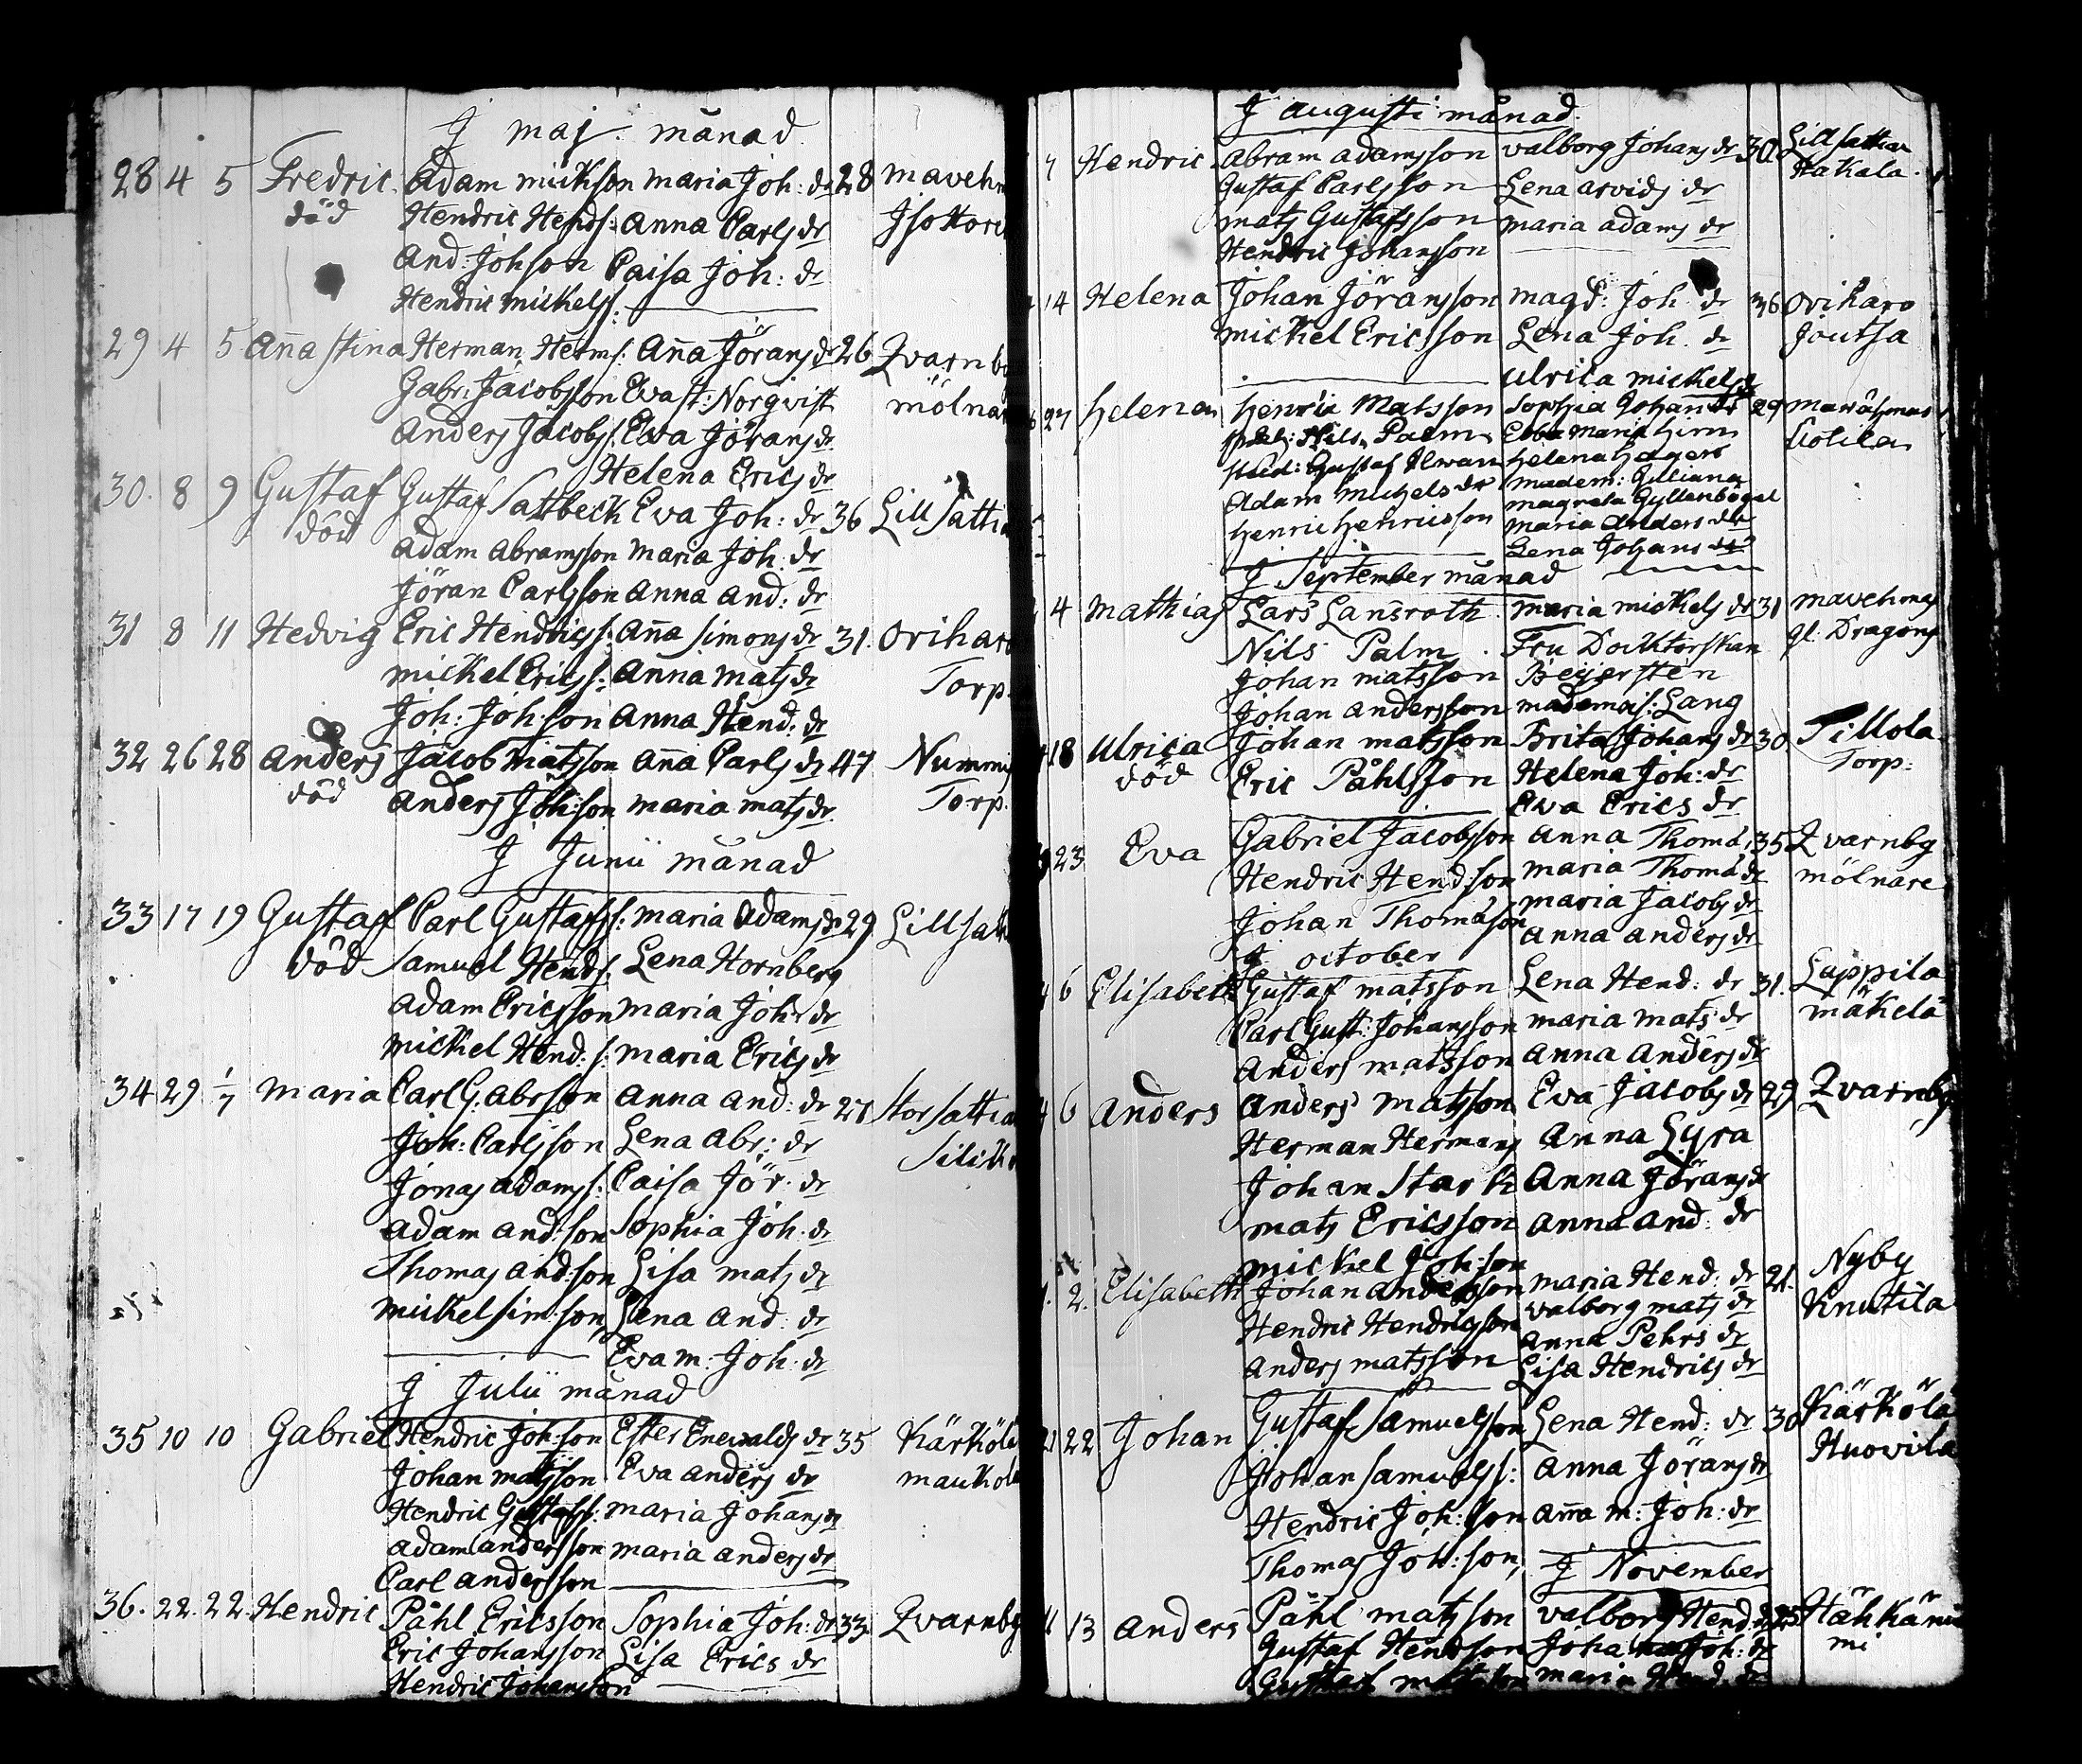 J maj månad
28 4 5 Fredric Adam mickson maria Joh: dr 28 maveh
död Hendric Hends: Anna Carls dr
And: Johson Caisa Joh: dr
Hendric mickels:
29 4 5 Aña stina Herman Herms: Aña Jörans dr 26 Qvarnb
Gabr: Jacobsson Eva st: Norqvist mölnar
Anders Jacobs: Eva Jörans dr
Helena Erics dr
30. 8 9 Gustaf Gustaf Sattbeck Eva Joh: dr 36 Lill Sattia
död Adam Abramsson maria Joh: dr
Jöran Carlsson Anna And: dr
31 8 11 Hedvig Eric Hendrics: Aña Simons dr 31. Orihar
mickel Erics: Anna mats dr Torp.
Joh: Joh:son Anna Hend: dr
32 26 28 Anders Jacob matsson Aña Carls dr 47 Nummis
död Anders Joh:son maria mats dr Torp.
J Junii månad
33 17 19 Gustaff Carl Gustaffs: maria Adams dr 29 Lill sat
död Samuel Hends: Lena Hornberg
Adam Ericsson maria Joh: dr
mickel Hend: s: maria Erics dr
34 29 1/7 maria Carl G: Abr:son Anna And: dr 27 Stor Sattia
Joh: Carlsson Lena Abr: dr
Jonas Adams: Caisa Jör: dr
Adam And:son Sophia Joh: dr
Thomas And:son Lisa mats dr
mickel Sim:son, Lena And: dr
Eva m: Joh: dr
J Julii månad
35 10 10 Gabriel Hendric Joh:son Ester Enevalds dr 35 Kärkölä
Johan matsson Eva Anders dr maukola
Hendric Gustafs: maria Johans dr
Adam Andersson maria Anders dr
Carl Andersson
36. 22. 22. Hendric Påhl Ericsson Sophia Joh: dr 33 Qvarnby
Eric Johansson Lisa Erics dr
Hendric Johansson
J Augusti månad
7 Hendric Abram Adamsson Valborg Johans dr 30 Lill sattian
Gustaf Carlsson Lena Arvids dr Hakala.
mats Gustafsson maria Adams dr
Hendric Johansson
14 Helena Johan Jöransson magd: Joh: dr 36 Oriharo
mickel Ericsson Lena Joh: dr Joutsa
Ulrica mickels dr
27 Helena Henric Matsson Sophia Johans dr 29
Nils Palm Ebba Maria Hirn
Gustaf Helena Hagert
Adam Michels dr madem: Gilliana
Henric Henricsson magreta Gyllenbögel
Maria Anders dr
Lena Johans dr
J September månad
4 mathias Lars Lansroth maria mickels dr 31
Nils Palm. Fru Docktorskan gl: Dragons
Johan matsson Beijersten
Johan Andersson mademois: Lang
18 Ulrica Johan matsson Brita Johans dr 30 Tillola
död Eric Påhlsson Helena Joh: dr Torp:
Eva Erics dr
23 Eva Gabriel Jacobsson Anna Thoma: 35 Qvarnbg
Hendric Hend:son maria Thoma dr mölnare
Johan Thomasson maria Jacobs dr
Anna Anders dr
J october
6 Elisabeth Gustaf matsson Lena Hend: dr 31. Lappila
Carl Gust: Johansson maria mats dr mäkelä
Anders matsson Anna Anders dr
6 Anders Anders matsson Eva Jacobs dr 29 Qvarnby
Herman Hermans Anna Lyra
Johan Stark Anna Jörans dr
mats Ericsson Anna And: dr
mickel Joh:son
2. Elisabeth Johan Andersson maria Hend: dr 21. Nyby
Hendric Hendricsson Valborg mats dr Knutila
Anders matsson Anna Pehrs dr
Lisa Hendrics dr
21 22 Johan Gustaf Samuelsson Lena Hend: dr 30 Kärkölä
Johan Samuels: Anna Jörans dr Huovila
Hendric Joh:son Aña m: Joh: dr
Thomas Joh:son,
J November
11 13 Anders Påhl matsson Valborg Hend: dr 25 Hähkäni
Gustaf Hendson Johanna Joh: dr mi
Gustaf matsson maria Hend: dr